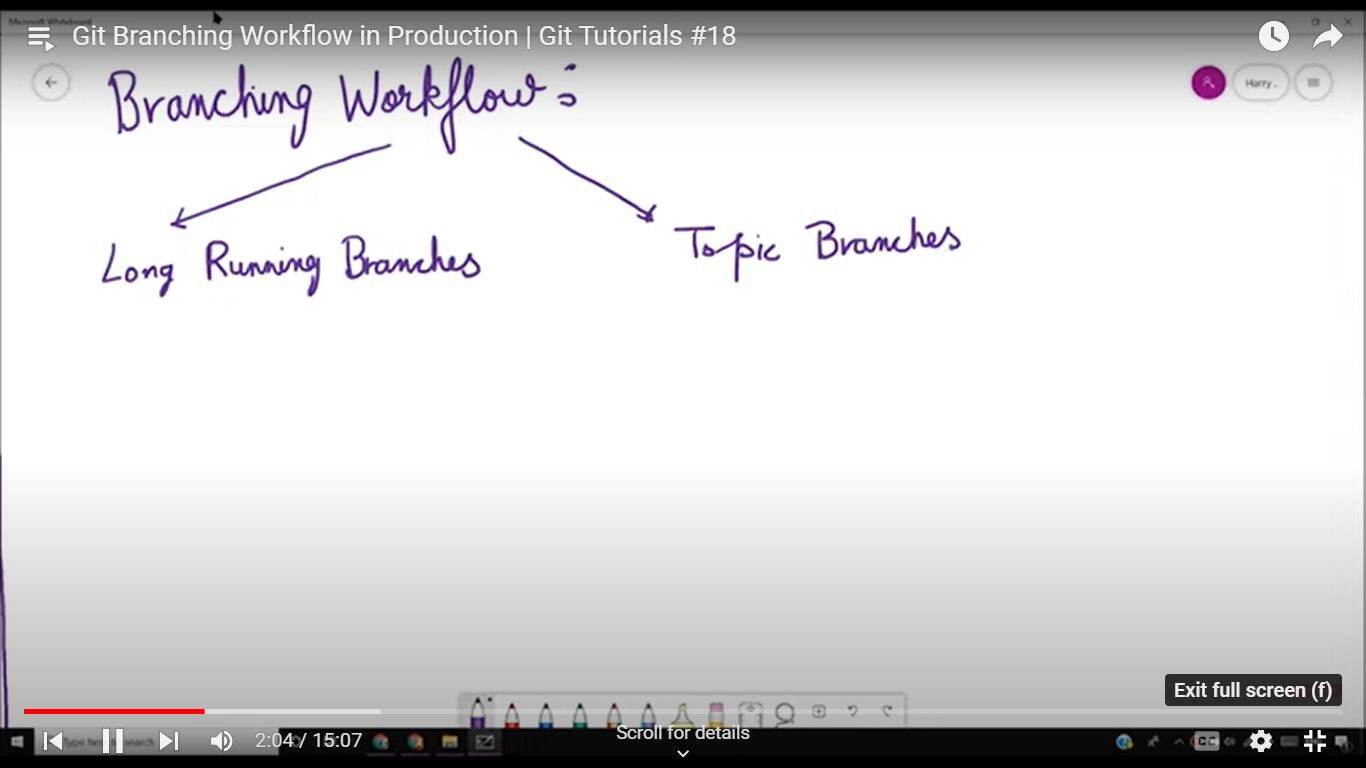 Git Branching Workflow in Production | Git Tutorials #18
Branching Workflow:
Harry .
Long Running Branches
Topic Branches
Exit full screen (f)
2:04 / 15:07
Scroll for details
CC